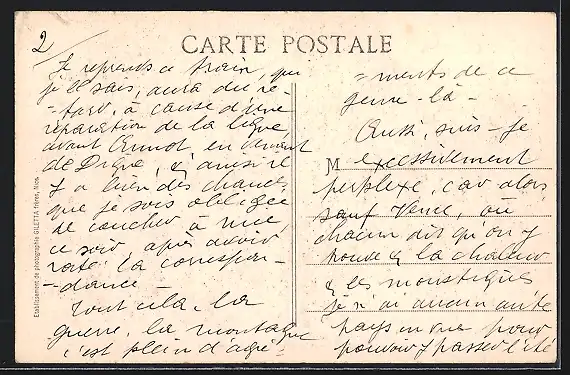 2
CARTE POSTALE
Je reprends ce train, qui
je le sais, aura du re-
-tard, à cause d'une
réparation de la ligne,
avant Annot en venant
de Digne, et ainsi il
y a bien des chances
que je sois obligée
de coucher à Nice,
ce soir après avoir
raté la correspon-
-dance -
Tout cela, la
guerre, la montagne
c'est plein d'agré-
=ments de ce
genre-là -
Aussi, suis-je
M excessivement
perplexe, car alors
sauf Vence, où
chacun dit qu'on y
trouve la chaleur
& les moustiques
je n'ai aucun autre
pays en vue pour
pouvoir y passer l'été
Etablissement de photographie GILETTA frères, Nice